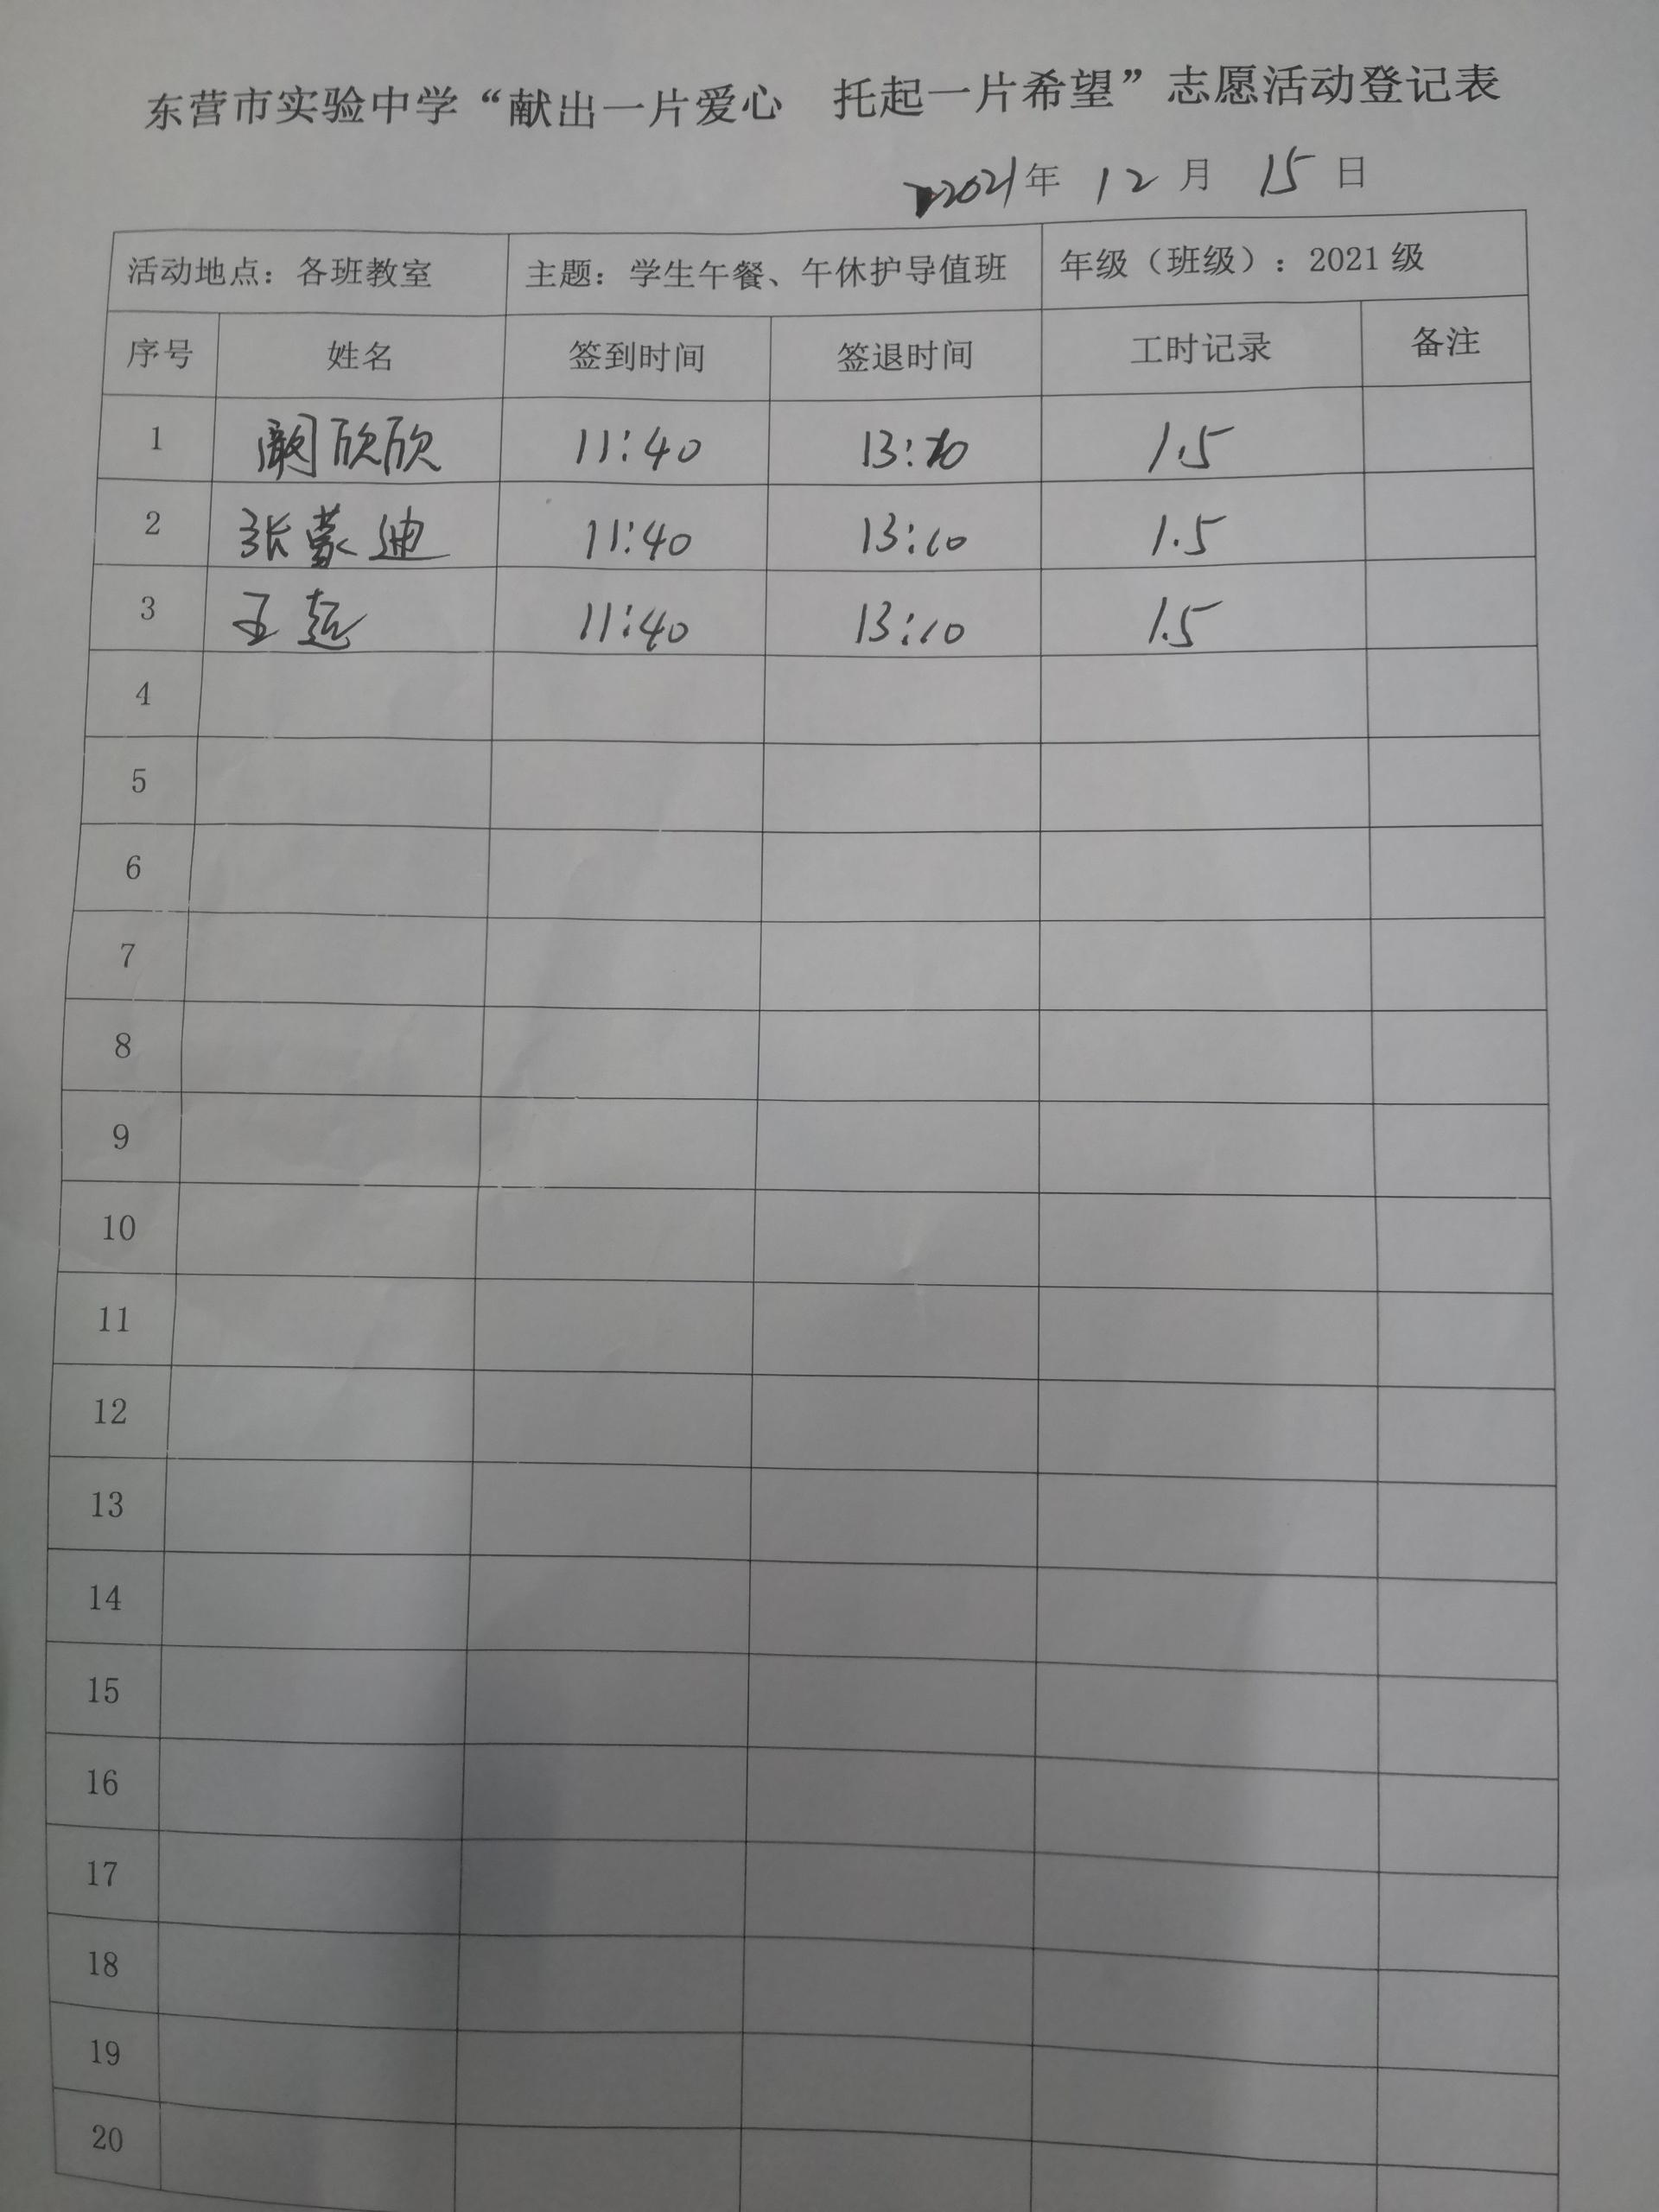 东营市实验中学“献出一片爱心 托起一片希望”志愿活动登记表
2021年 12月 15日
活动地点：各班教室 主题：学生午餐、午休护导值班 年级（班级）：2021级
序号 姓名 签到时间 签退时间 工时记录 备注
1 阚欣欣 11:40 13:10 1.5
2 张蒙迪 11:40 13:10 1.5
3 王超 11:40 13:10 1.5
4
5
6
7
8
9
10
11
12
13
14
15
16
17
18
19
20